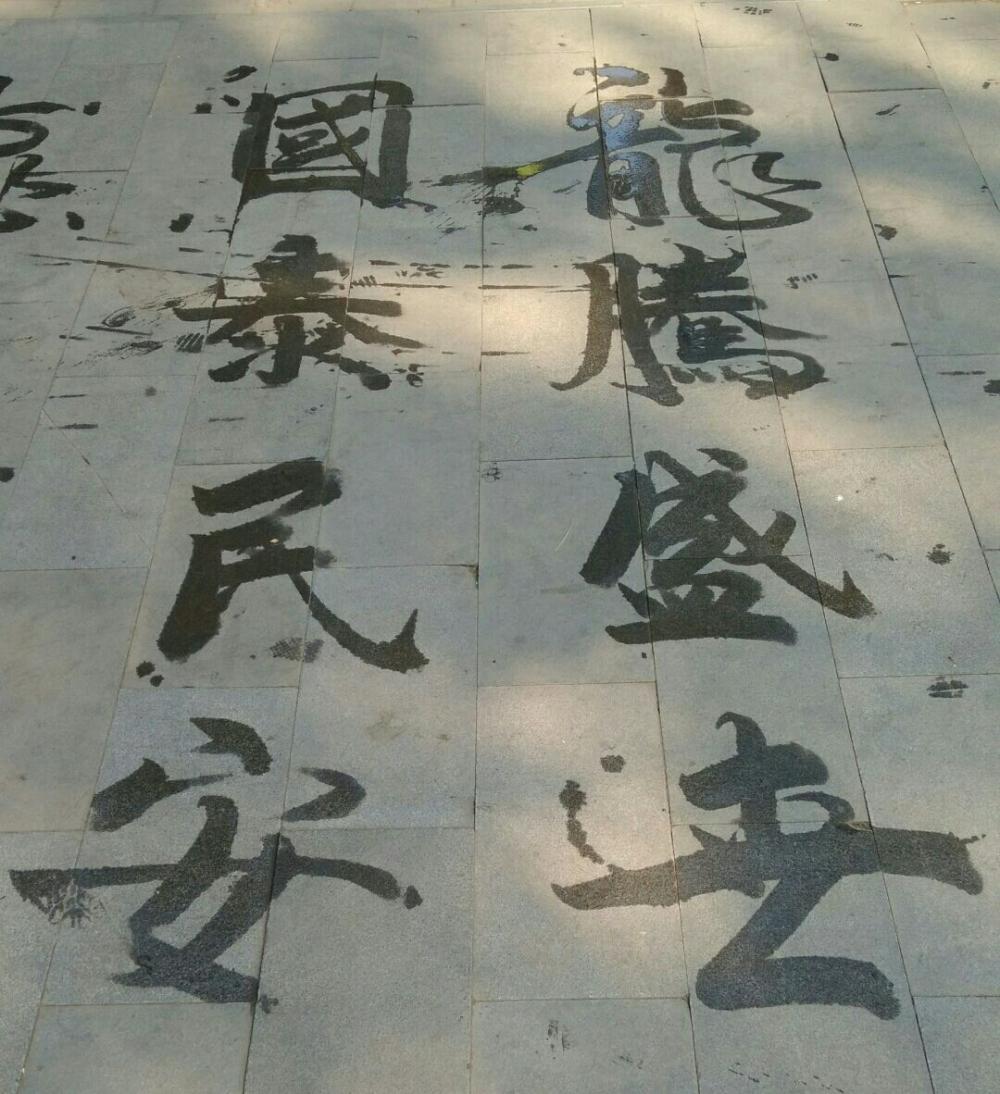 龍騰盛世
國泰民安